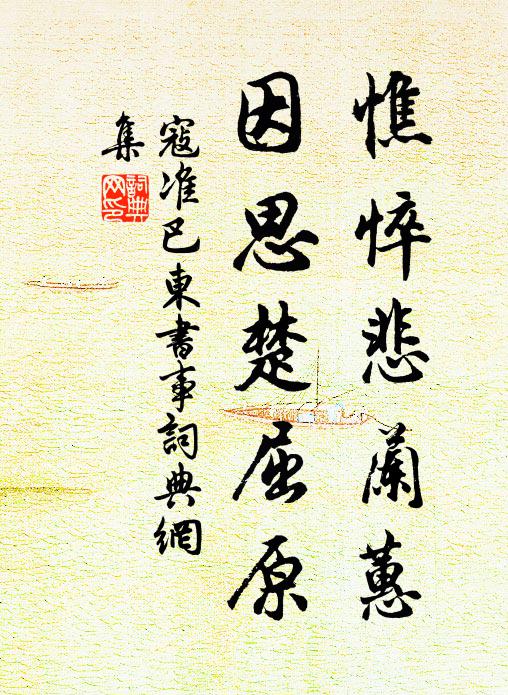 憔悴悲蘭蕙
因思楚屈原
寇准巴東書事詞典網
集
詞典
网印